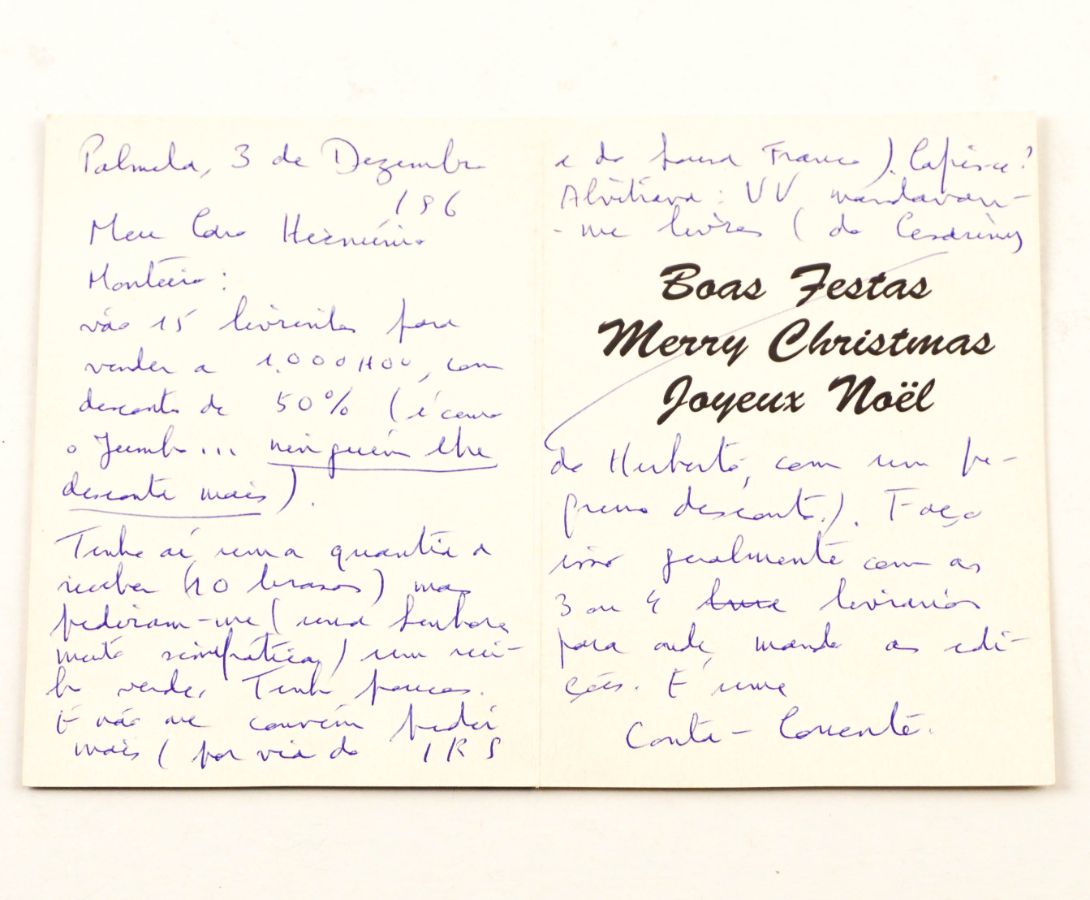 Palmela, 3 de Dezembro
196
Meu Caro Hermínio
Monteiro:
vão 15 livrinhos para
vender a 1.000$00, com
desconto de 50% (é como
o Jumbo... ninguém lhe
desconta mais).
Tenho aí uma quantia a
receber (10 brasas) mas
pediram-me (uma senhora
muito simpática) um reci-
bo verde. Tenho poucos.
E não me convém pedir
mais (por via do IRS
e do Sousa Franco). Capisce?
Alvitrava: VV mandavam-
-me livros (do Cesariny
Boas Festas
Merry Christmas
Joyeux Noël
do Herberto, com um pe-
queno desconto). Faço
isso geralmente com as
3 ou 4 livrarias
para onde mando as edi-
ções. É uma
Conta-Corrente.